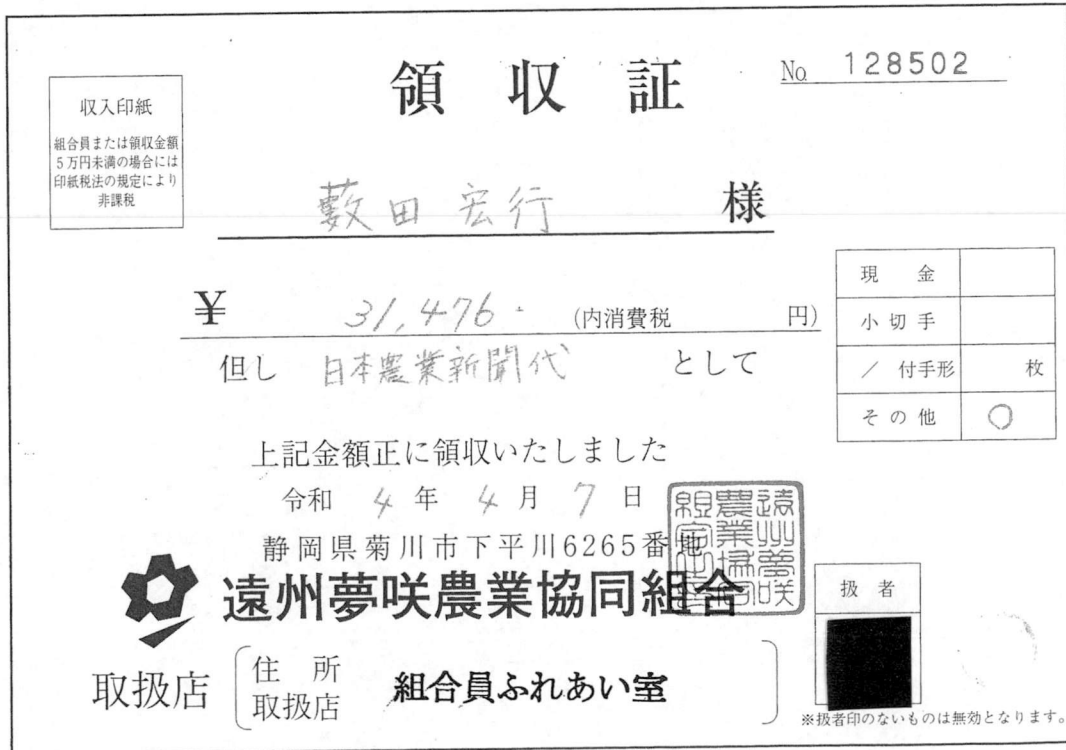 領収証
No 128502
収入印紙
組合員または領収金額
5万円未満の場合には
印紙税法の規定により
非課税
藪田宏行 様
¥ 31,476. (内消費税 円)
但し 日本農業新聞代 として
現 金
小切手
/ 付手形 枚
その他 ○
上記金額正に領収いたしました
令和 4 年 4 月 7 日
静岡県菊川市下平川6265番地
遠州夢咲農業協同組合
遠州夢咲
農業協同
組合之印
扱 者
取扱店
住 所
取扱店
組合員ふれあい室
※扱者印のないものは無効となります。